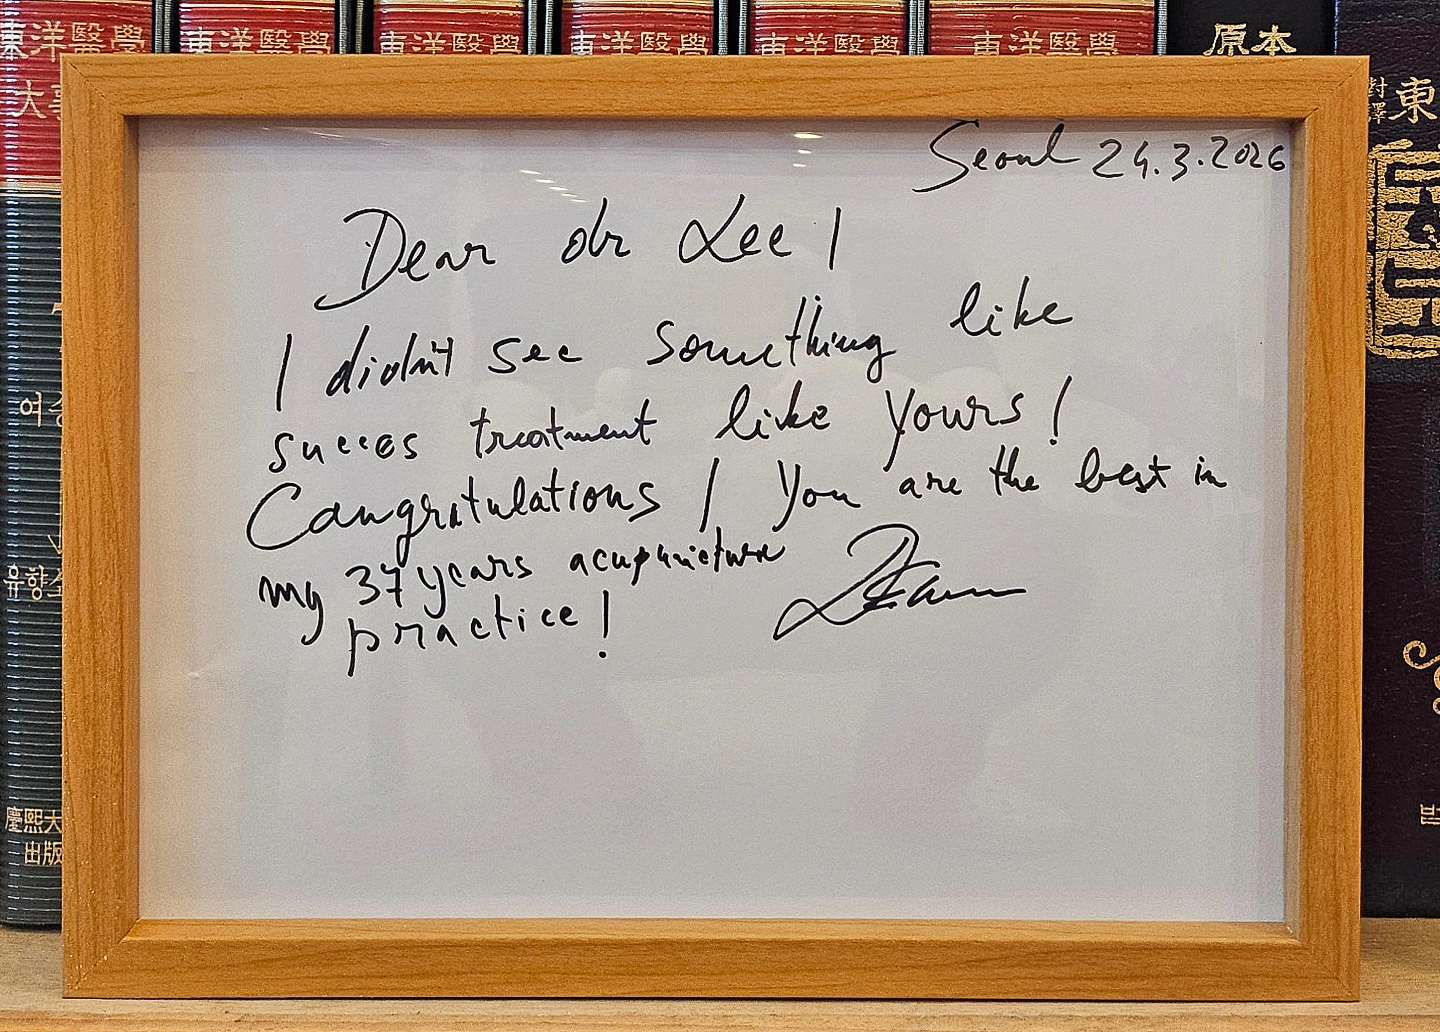 東洋醫學 東洋醫學 東洋醫學 東洋醫學 東洋醫學 東洋醫學 原本
大
對譯 東
Seoul 24.3.2026
Dear dr Lee!
I didn't see something like
succes treatment like yours!
Congratulations! You are the best in
my 37 years acupuncture
practice!
유향소
慶熙大
出版